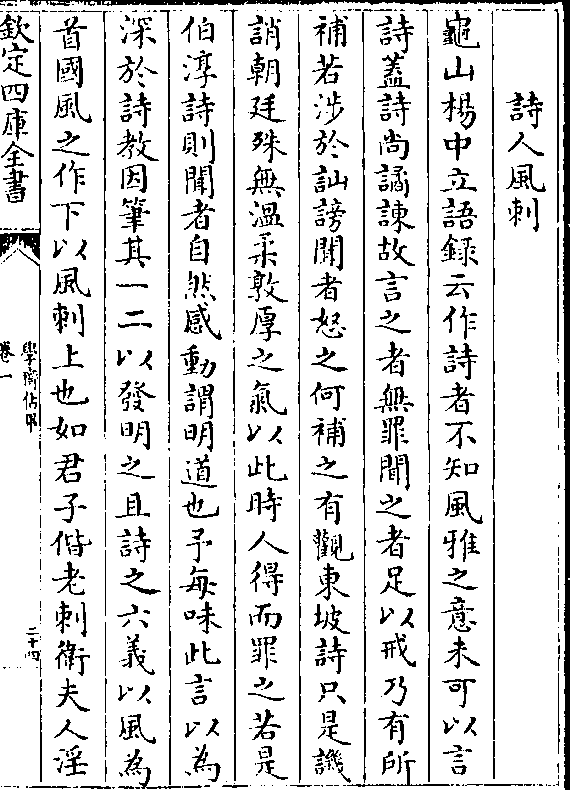 詩人風刺
龜山楊中立語録云作詩者不知風雅之意未可以言
詩蓋詩尚譎諫故言之者無罪聞之者足以戒乃有所
補若涉於訕謗聞者怒之何補之有觀東坡詩只是譏
誚朝廷殊無溫柔敦厚之氣以此時人得而罪之若是
伯淳詩則聞者自然感動謂明道也予每味此言以為
深於詩教因筆其一二以發明之且詩之六義以風為
首國風之作下以風刺上也如君子偕老刺衛夫人淫
欽定四庫全書
學齋佔畢
卷一
二十四